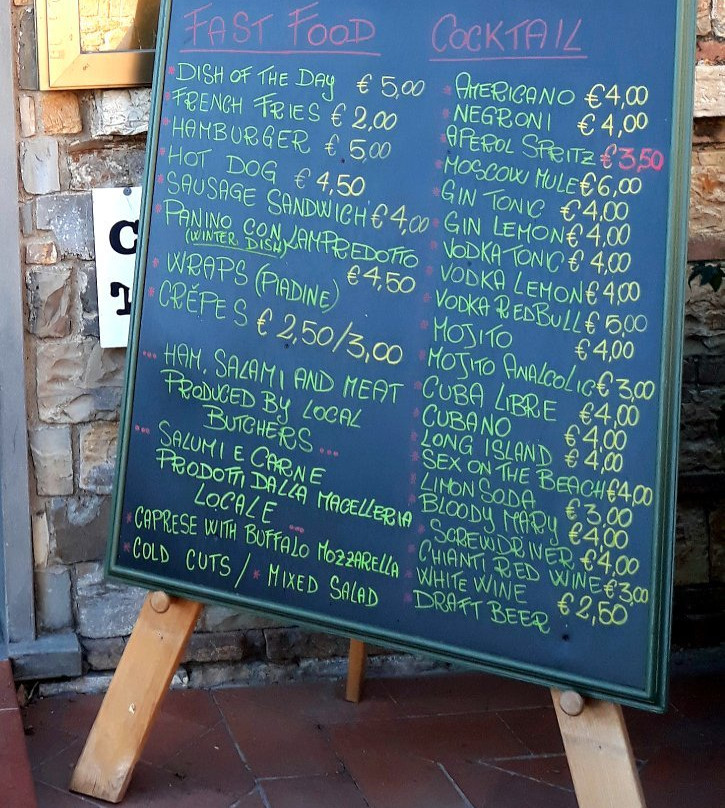 FAST FOOD
* DISH OF THE DAY € 5,00
* FRENCH FRIES € 2,00
* HAMBURGER € 5,00
* HOT DOG € 4,50
* SAUSAGE SANDWICH € 4,00
* PANINO CON LAMPREDOTTO
(WINTER DISH) € 4,50
* WRAPS (PIADINE)
* CRÊPES € 2,50/3,00
... HAM, SALAMI AND MEAT
PRODUCED BY LOCAL
BUTCHERS ...
... SALUMI E CARNE
PRODOTTI DALLA MACELLERIA
LOCALE ...
* CAPRESE WITH BUFFALO MOZZARELLA
* COLD CUTS / * MIXED SALAD
COCKTAIL
* AMERICANO €4,00
* NEGRONI € 4,00
* APEROL SPRITZ €3,50
* MOSCOW MULE €6,00
* GIN TONIC € 4,00
* GIN LEMON € 4,00
* VODKA TONIC € 4,00
* VODKA LEMON € 4,00
* VODKA REDBULL € 5,00
* MOJITO € 4,00
* MOJITO ANALCOLIC € 3,00
* CUBA LIBRE € 4,00
* CUBANO € 4,00
* LONG ISLAND € 4,00
* SEX ON THE BEACH €4,00
* LIMON SODA € 3,00
* BLOODY MARY €4,00
* SCREWDRIVER €4,00
* CHIANTI RED WINE €3,00
* WHITE WINE € 2,50
* DRAFT BEER